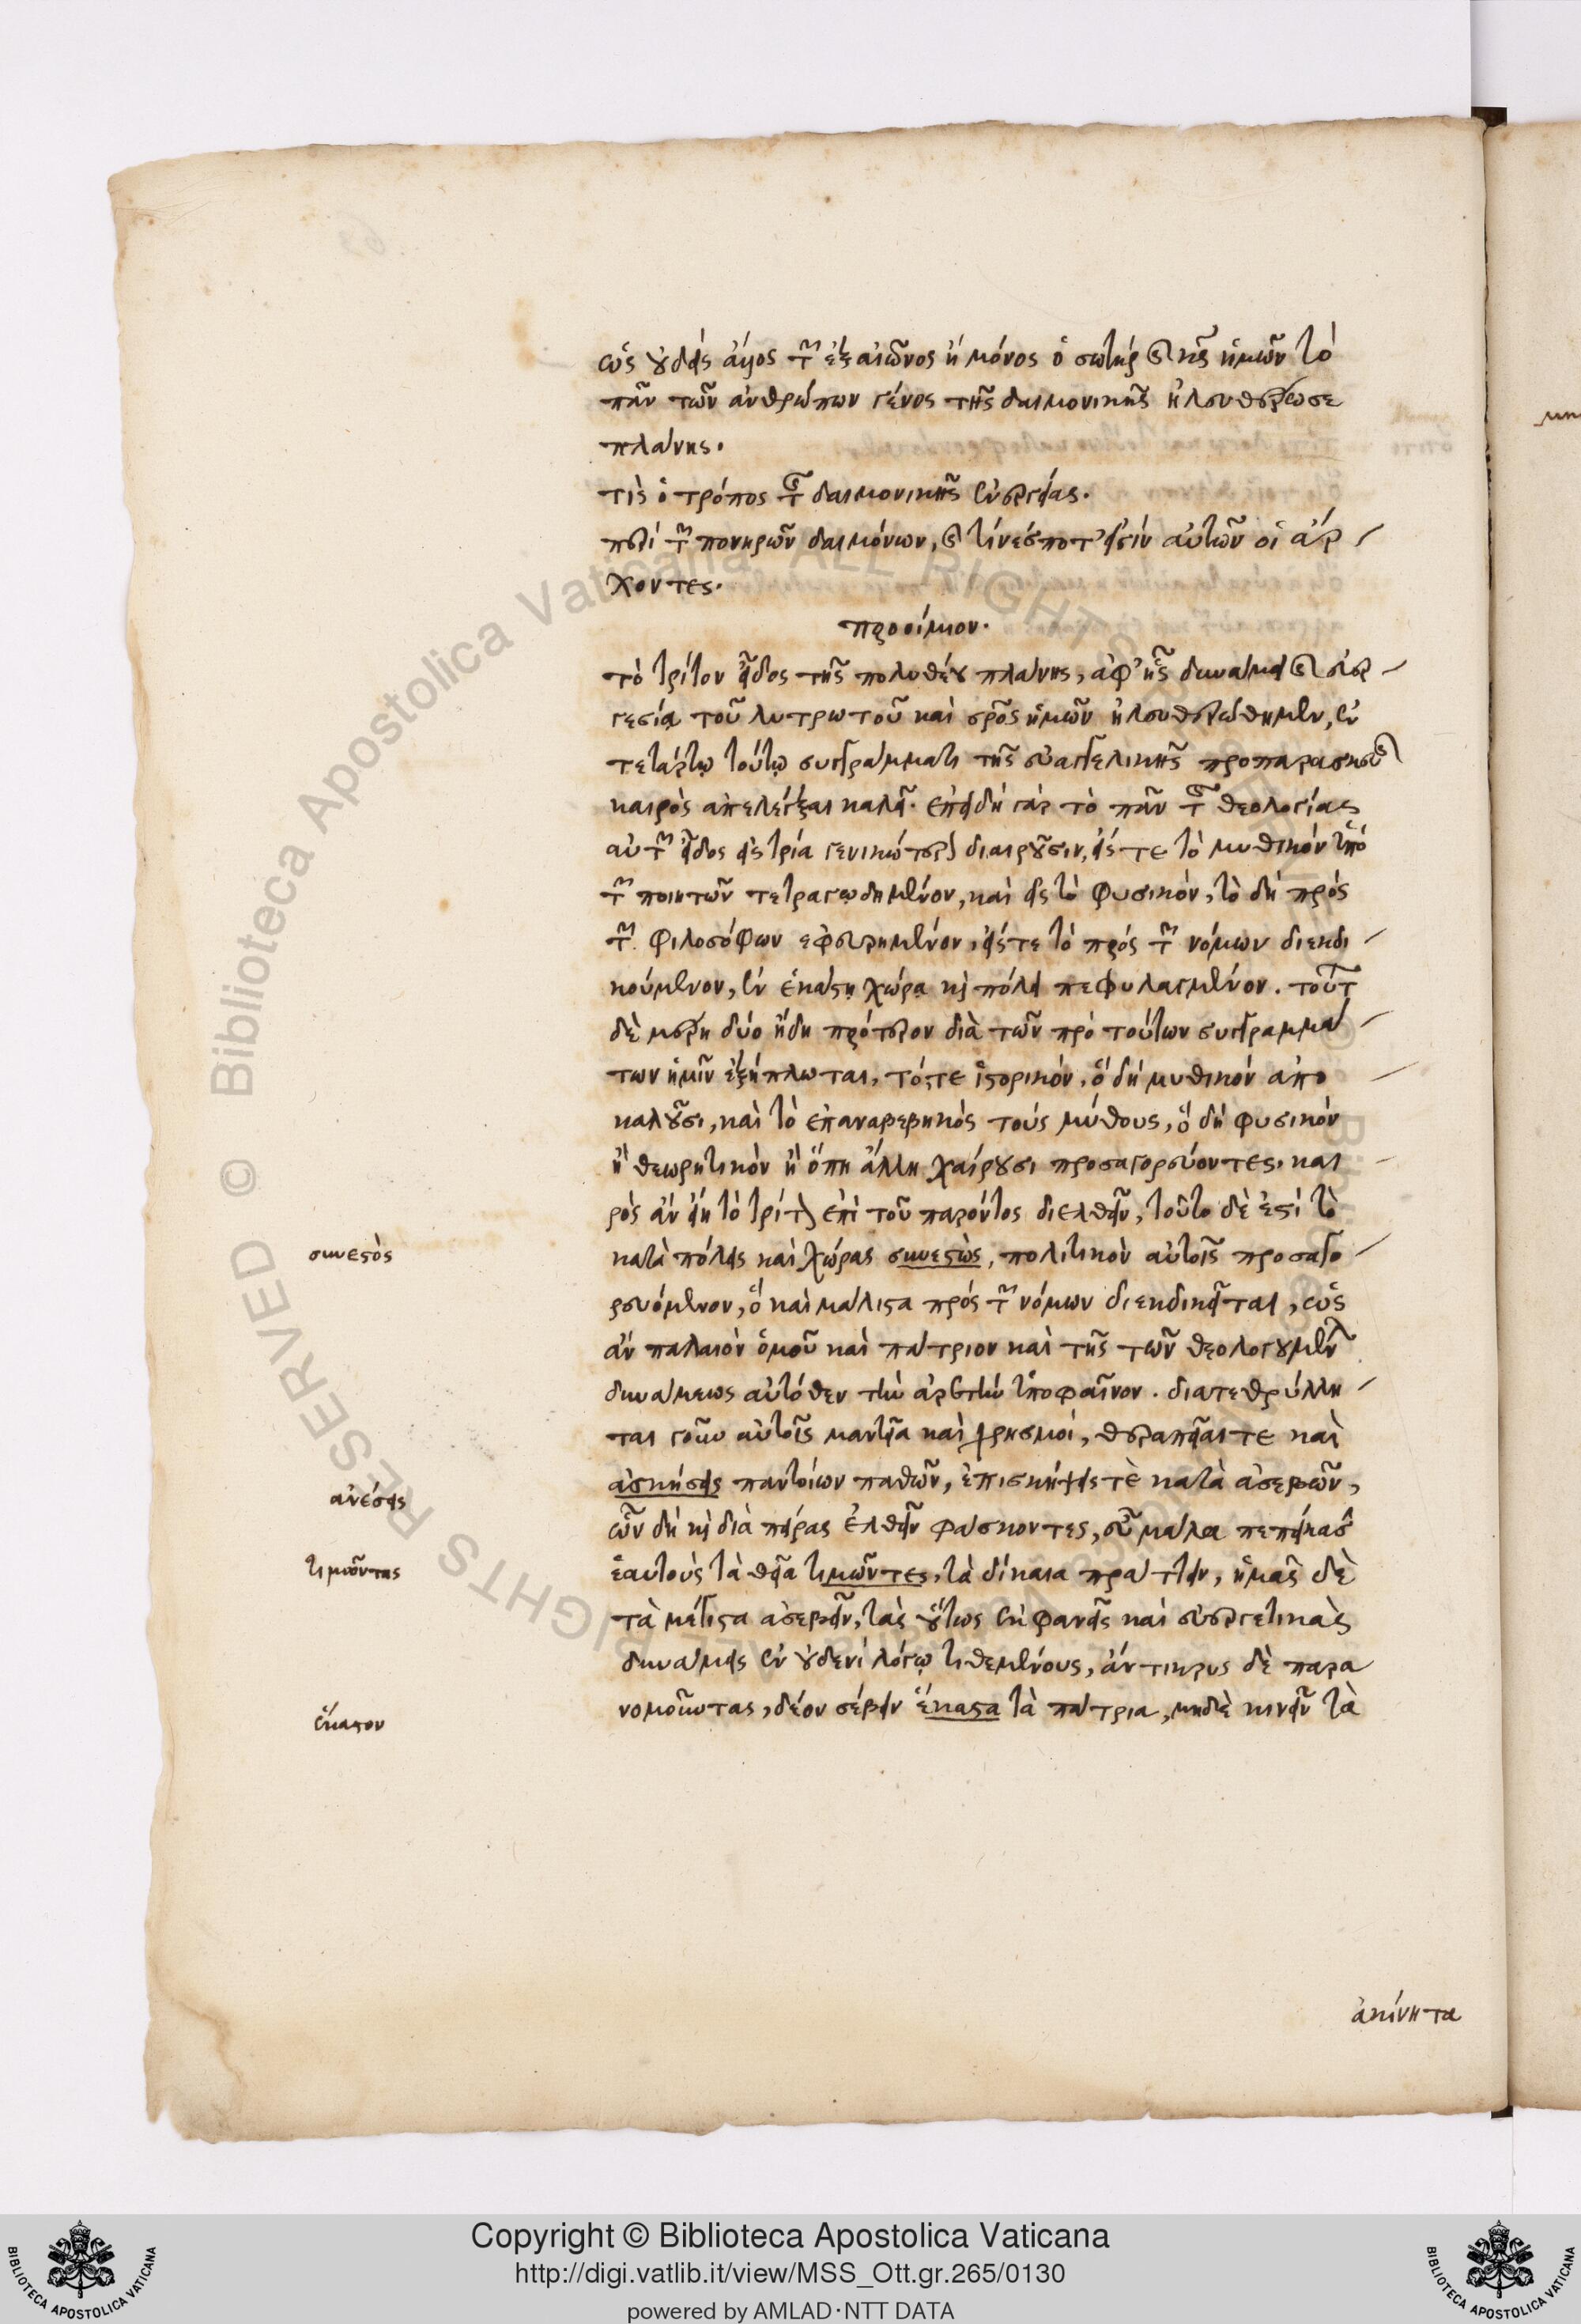 ὡς οὐδεὶς ἄλλος τῶν ἐξ αἰῶνος ἢ μόνος ὁ σωτὴρ καὶ κς ἡμῶν τὸ
πᾶν τῶν ἀνθρώπων γένος τῆς δαιμονικῆς ἠλευθέρωσε
πλάνης.
τίς ὁ τρόπος τῆς δαιμονικῆς ἐνεργείας.
περὶ τῶν πονηρῶν δαιμόνων, καὶ τίνές ποτ' εἰσὶν αὐτῶν οἱ ἄρ
χοντες.
προοίμιον.
τὸ τρίτον εἶδος τῆς πολυθέου πλάνης, ἀφ' ἧς δυνάμει καὶ εὐερ
γεσίᾳ τοῦ λυτρωτοῦ καὶ σρς ἡμῶν ἠλευθερώθημεν, ἐν
τετάρτῳ τούτῳ συγγράμματι τῆς εὐαγγελικῆς προπαρασκευῆς
καιρὸς ἀπελέγξαι καλεῖ. ἐπειδὴ γὰρ τὸ πᾶν τῆς θεολογίας
αὐτῶν εἶδος εἰς τρία γενικώτερον διαιροῦσιν, εἴς τε τὸ μυθικὸν ὑπὸ
τῶν ποιητῶν τετραγῳδημένον, καὶ εἰς τὸ φυσικὸν, τὸ δὴ πρὸς
τῶν φιλοσόφων ἐφευρημένον, εἴς τε τὸ πρὸς τῶν νόμων διεκδι
κούμενον, ἐν ἑκάστῃ χώρᾳ καὶ πόλει πεφυλαγμένον. τούτων
δὲ μέρη δύο ἤδη πρότερον διὰ τῶν πρὸ τούτων συγγραμμά
των ἡμῖν ἐξήπλωται, τό, τε ἱστορικὸν, ὃ δὴ μυθικὸν ἀπο
καλοῦσι, καὶ τὸ ἐπαναβεβηκὸς τοὺς μύθους, ὃ δὴ φυσικὸν
ἢ θεωρητικὸν ἢ ὅπη ἄλλη χαίρουσι προσαγορεύοντες. και
ρὸς ἂν εἴη τὸ τρίτον ἐπὶ τοῦ παρόντος διελθεῖν, τοῦτο δὲ ἐστὶ τὸ
κατὰ πόλεις καὶ χώρας συνεστὼς, πολιτικὸν αὐτοῖς προσαγο
ρευόμενον, ὃ καὶ μάλιστα πρὸς τῶν νόμων διεκδικεῖται, ὡς
ἂν παλαιὸν ὁμοῦ καὶ πάτριον καὶ τῆς τῶν θεολογουμένων
δυνάμεως αὐτόθεν τὴν ἀρετὴν ὑποφαῖνον. διατεθρύλλη
ται γοῦν αὐτοῖς μαντεῖα καὶ χρησμοὶ, θεραπεῖαι τε καὶ
ἀσκήσεις παντοίων παθῶν, ἐπισκήψεις τὲ κατὰ ἀσεβῶν,
ὧν δὴ καὶ διὰ πείρας ἐλθεῖν φάσκοντες, εὖ μάλα πεπείκασιν
ἑαυτοὺς τὰ θεῖα τιμῶντες, τὰ δίκαια πράττειν, ἡμᾶς δὲ
τὰ μέγιστα ἀσεβεῖν, τὰς οὕτως ἐμφανεῖς καὶ εὐεργετικὰς
δυνάμεις ἐν οὐδενὶ λόγῳ τιθεμένους, ἄντικρυς δὲ παρα
νομοῦντας, δέον σέβειν ἕκαστα τὰ πάτρια, μηδὲ κινεῖν τὰ
συνεστὸς
ἀνέσεις
τιμῶντας
ἕκαστον
ἀκίνητα
Biblioteca Apostolica Vaticana ALL RIGHTS RESERVED ©
Copyright © Biblioteca Apostolica Vaticana
http://digi.vatlib.it/view/MSS_Ott.gr.265/0130
powered by AMLAD·NTT DATA
BIBLIOTECA APOSTOLICA VATICANA
BIBLIOTECA APOSTOLICA VATICANA